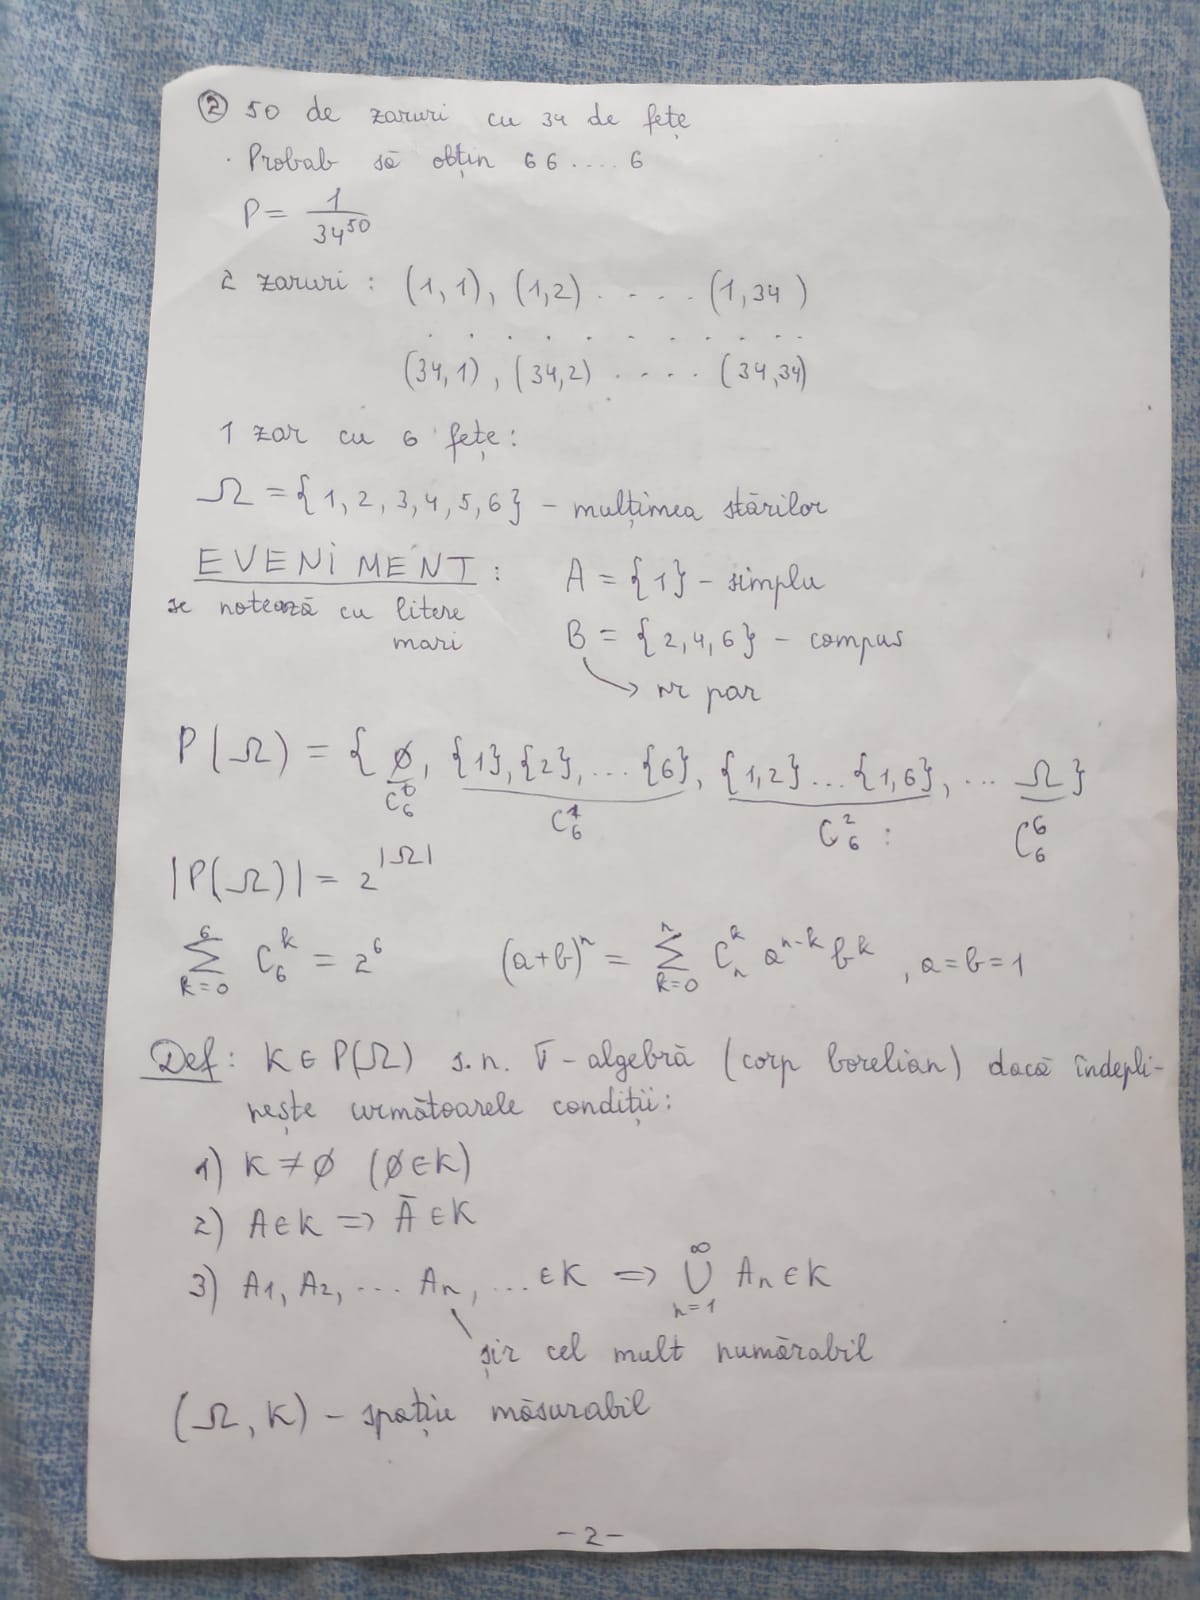 ② 50 de zaruri cu 34 de fețe
· Probab să obțin 6 6 .... 6
P = 1/34^50
2 zaruri : (1,1), (1,2) . . . . (1,34)
. . . . . . . . . .
(34,1), (34,2) . . . . (34,34)
1 zar cu 6 fețe :
Ω = {1, 2, 3, 4, 5, 6} – mulțimea stărilor
EVENIMENT : A = {1} – simplu
se notează cu litere mari B = {2,4,6} – compus
→ nr par
P(Ω) = {∅, {1}, {2}, ... {6}, {1,2} ... {1,6}, ... Ω}
C_6^0 C_6^1 C_6^2 : C_6^6
|P(Ω)| = 2^|Ω|
∑_{k=0}^{6} C_6^k = 2^6 (a+b)^n = ∑_{k=0}^{n} C_n^k a^{n-k} b^k , a=b=1
Def : K ∈ P(Ω) s.n. σ-algebră (corp borelian) dacă îndepli-
nește următoarele condiții :
1) K ≠ ∅ (∅ ∈ K)
2) A ∈ K => Ā ∈ K
3) A1, A2, ... An, ... ∈ K => ⋃_{n=1}^{∞} An ∈ K
șir cel mult numărabil
(Ω, K) – spațiu măsurabil
- 2 -